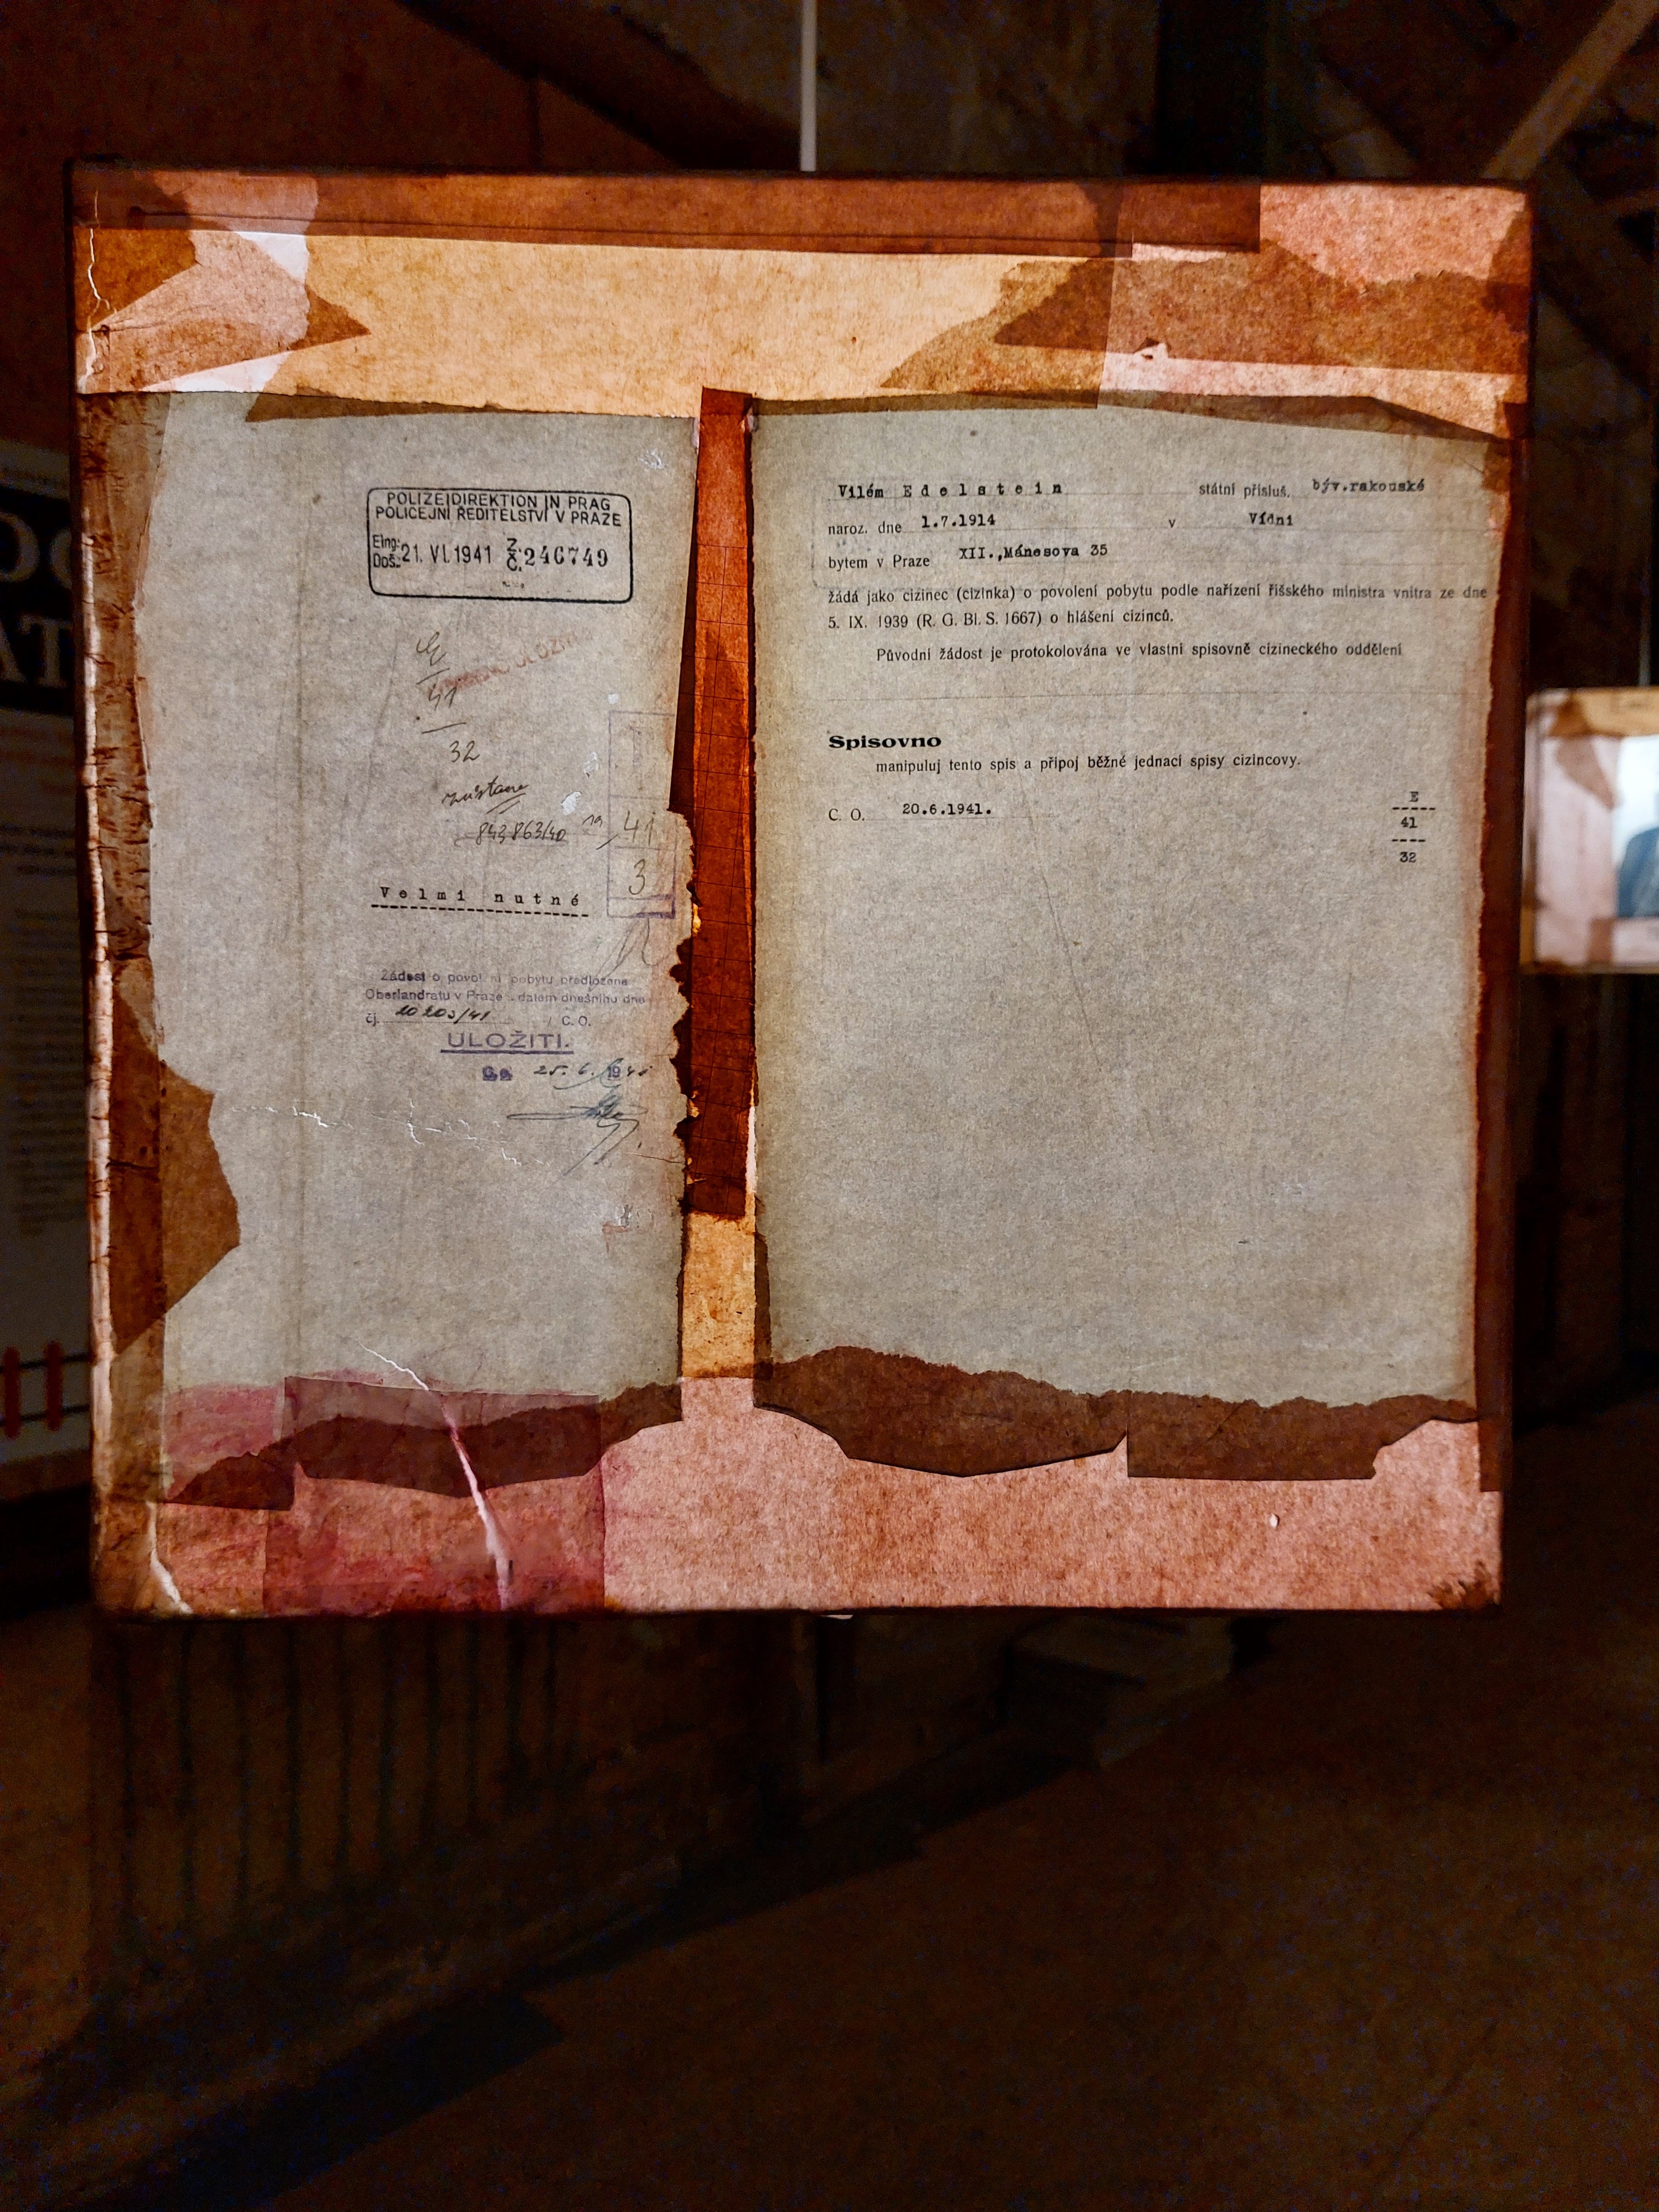 POLIZEIDIREKTION IN PRAG
POLICEJNÍ ŘEDITELSTVÍ V PRAZE
Eing:
Doš.: 21. VI. 1941 Z. Č. 246749
E
41
32
zůstane
843 863/40 na 41
3
Velmi nutné
Žádost o povolení pobytu předložena
Oberlandratu v Praze datem dnešního dne
čj. 20203/41 / C. O.
ULOŽITI.
25. 6. 1941
Vilém Edelstein státní přísluš. býv.rakouské
naroz. dne 1.7.1914 v Vídni
bytem v Praze XII.,Mánesova 35
žádá jako cizinec (cizinka) o povolení pobytu podle nařízení říšského ministra vnitra ze dne
5. IX. 1939 (R. G. Bl. S. 1667) o hlášení cizinců.
Původní žádost je protokolována ve vlastní spisovně cizineckého oddělení
Spisovno
manipuluj tento spis a připoj běžné jednací spisy cizincovy.
C. O. 20.6.1941.
E
41
32